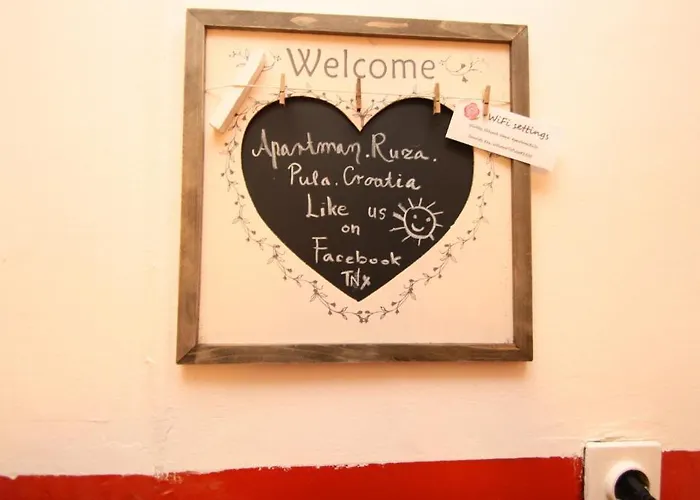 Welcome
Apartman. Ruza.
Pula. Croatia
Like us
on
Facebook
TNX
WiFi settings